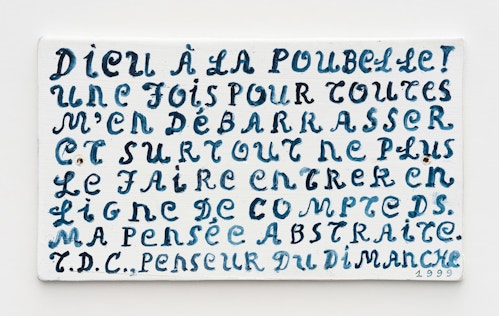 DIEU À LA POUBELLE!
UNE FOIS POUR TOUTES
M'EN DÉBARRASSER
ET SURTOUT NE PLUS
LE FAIRE ENTRER EN
LIGNE DE COMPTES.
MA PENSÉE ABSTRAITE.
T.D.C., PENSEUR DU DIMANCHE
1999